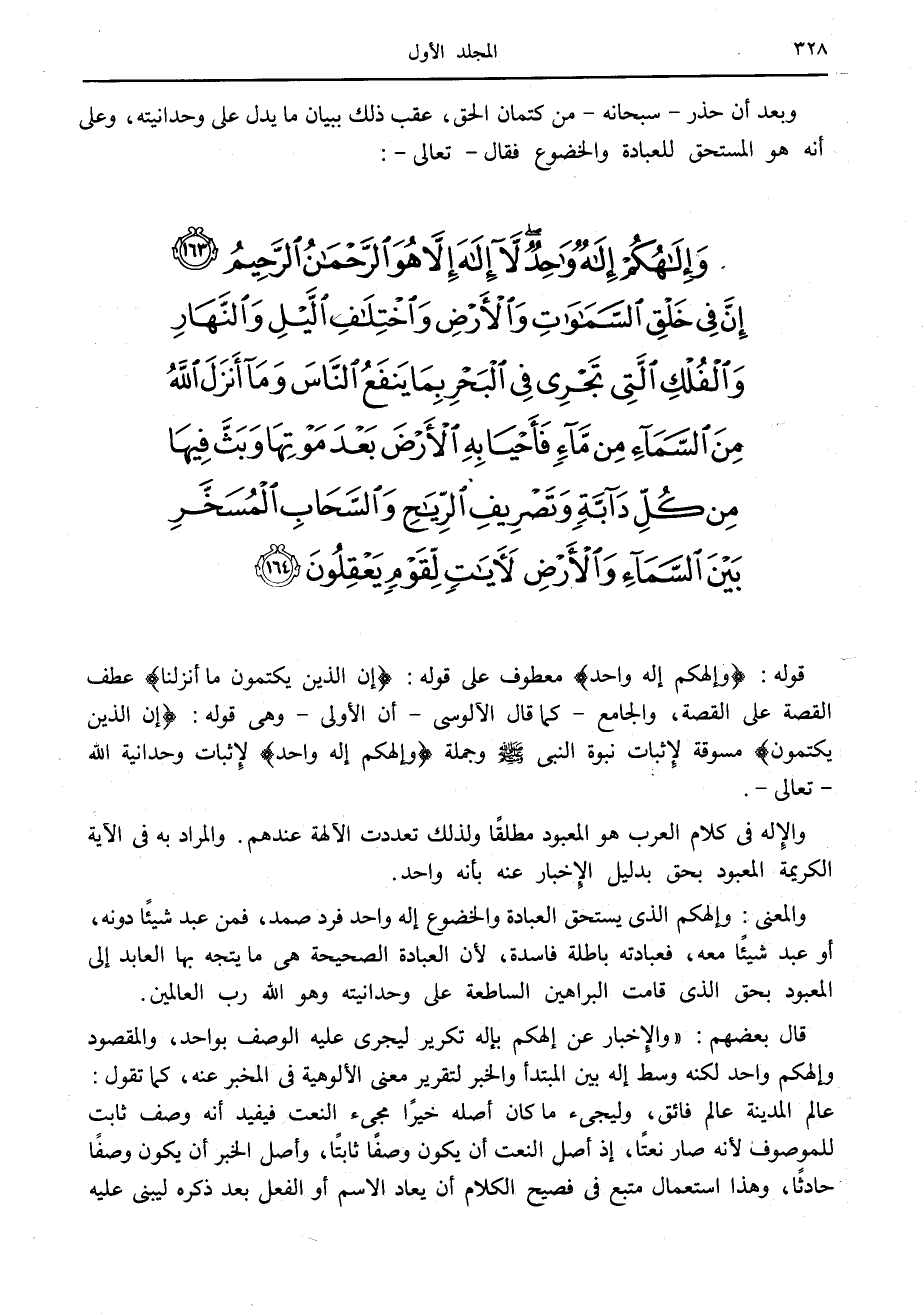 ٣٢٨
المجلد الأول
وبعد أن حذر - سبحانه - من كتمان الحق، عقب ذلك ببيان ما يدل على وحدانيته، وعلى
أنه هو المستحق للعبادة والخضوع فقال - تعالى - :
وَإِلَٰهُكُمْ إِلَٰهٌ وَٰحِدٌ ۖ لَّآ إِلَٰهَ إِلَّا هُوَ ٱلرَّحْمَٰنُ ٱلرَّحِيمُ ﴿١٦٣﴾
إِنَّ فِى خَلْقِ ٱلسَّمَٰوَٰتِ وَٱلْأَرْضِ وَٱخْتِلَٰفِ ٱلَّيْلِ وَٱلنَّهَارِ
وَٱلْفُلْكِ ٱلَّتِى تَجْرِى فِى ٱلْبَحْرِ بِمَا يَنفَعُ ٱلنَّاسَ وَمَآ أَنزَلَ ٱللَّهُ
مِنَ ٱلسَّمَآءِ مِن مَّآءٍ فَأَحْيَا بِهِ ٱلْأَرْضَ بَعْدَ مَوْتِهَا وَبَثَّ فِيهَا
مِن كُلِّ دَآبَّةٍ وَتَصْرِيفِ ٱلرِّيَٰحِ وَٱلسَّحَابِ ٱلْمُسَخَّرِ
بَيْنَ ٱلسَّمَآءِ وَٱلْأَرْضِ لَءَايَٰتٍ لِّقَوْمٍ يَعْقِلُونَ ﴿١٦٤﴾
قوله : ﴿وإلهكم إله واحد﴾ معطوف على قوله : ﴿إن الذين يكتمون ما أنزلنا﴾ عطف
القصة على القصة، والجامع - كما قال الآلوسى - أن الأولى - وهى قوله : ﴿إن الذين
يكتمون﴾ مسوقة لإثبات نبوة النبى ﷺ وجملة ﴿وإلهكم إله واحد﴾ لإثبات وحدانية الله
- تعالى - .
والإله فى كلام العرب هو المعبود مطلقًا ولذلك تعددت الآلهة عندهم. والمراد به فى الآية
الكريمة المعبود بحق بدليل الإخبار عنه بأنه واحد.
والمعنى : وإلهكم الذى يستحق العبادة والخضوع إله واحد فرد صمد، فمن عبد شيئًا دونه،
أو عبد شيئًا معه، فعبادته باطلة فاسدة، لأن العبادة الصحيحة هى ما يتجه بها العابد إلى
المعبود بحق الذى قامت البراهين الساطعة على وحدانيته وهو الله رب العالمين.
قال بعضهم : «والإخبار عن إلهكم بإله تكرير ليجرى عليه الوصف بواحد، والمقصود
وإلهكم واحد لكنه وسط إله بين المبتدأ والخبر لتقرير معنى الألوهية فى المخبر عنه، كما تقول :
عالم المدينة عالم فائق، وليجىء ما كان أصله خبرًا مجىء النعت فيفيد أنه وصف ثابت
للموصوف لأنه صار نعتًا، إذ أصل النعت أن يكون وصفًا ثابتًا، وأصل الخبر أن يكون وصفًا
حادثًا، وهذا استعمال متبع فى فصيح الكلام أن يعاد الاسم أو الفعل بعد ذكره ليبنى عليه